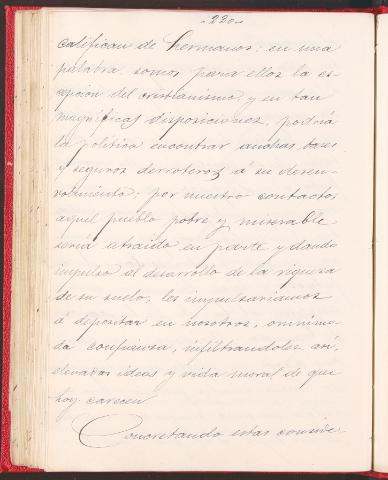 -220-
califican de hermanos; en una
palabra somos para ellos la es-
cepcion del cristianismo, y en tan
magnificas disposiciones, podria
la politica encontrar anchas bases
y seguros derroteros á su desen-
volvimiento; por nuestro contacto,
aquel pueblo pobre y miserable
seria atraido en parte y dando
impulso al desarrollo de la riqueza
de su suelo, les impulsariamos
á depositar en nosotros, omnimo-
da confianza, infiltrandoles asi,
elevadas ideas y vida moral de que
hoy carecen
Concretando estas conside-